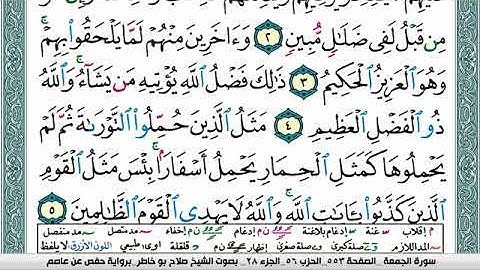 مِن قَبْلُ لَفِى ضَلَـٰلٍ مُّبِينٍ ٢ وَءَاخَرِينَ مِنْهُمْ لَمَّا يَلْحَقُوا۟ بِهِمْ ۚ
وَهُوَ ٱلْعَزِيزُ ٱلْحَكِيمُ ٣ ذَٰلِكَ فَضْلُ ٱللَّهِ يُؤْتِيهِ مَن يَشَآءُ ۚ وَٱللَّهُ
ذُو ٱلْفَضْلِ ٱلْعَظِيمِ ٤ مَثَلُ ٱلَّذِينَ حُمِّلُوا۟ ٱلتَّوْرَىٰةَ ثُمَّ لَمْ
يَحْمِلُوهَا كَمَثَلِ ٱلْحِمَارِ يَحْمِلُ أَسْفَارًۢا ۚ بِئْسَ مَثَلُ ٱلْقَوْمِ
ٱلَّذِينَ كَذَّبُوا۟ بِـَٔايَـٰتِ ٱللَّهِ ۚ وَٱللَّهُ لَا يَهْدِى ٱلْقَوْمَ ٱلظَّـٰلِمِينَ ٥
م إقلاب بلاغنة إدغام بلاغنة إدغام إخفاء مد متصل مد منفصل
المد اللازم صلة كبرى صلة صغرى إظهار قلقلة لوى، طبيعي اللون الأزرق لا يلفظ
سورة الجمعة _الصفحة ٥٥٣_ الحزب ٥٦_ الجزء ٢٨_ بصوت الشيخ صلاح بو خاطر_برواية حفص عن عاصم